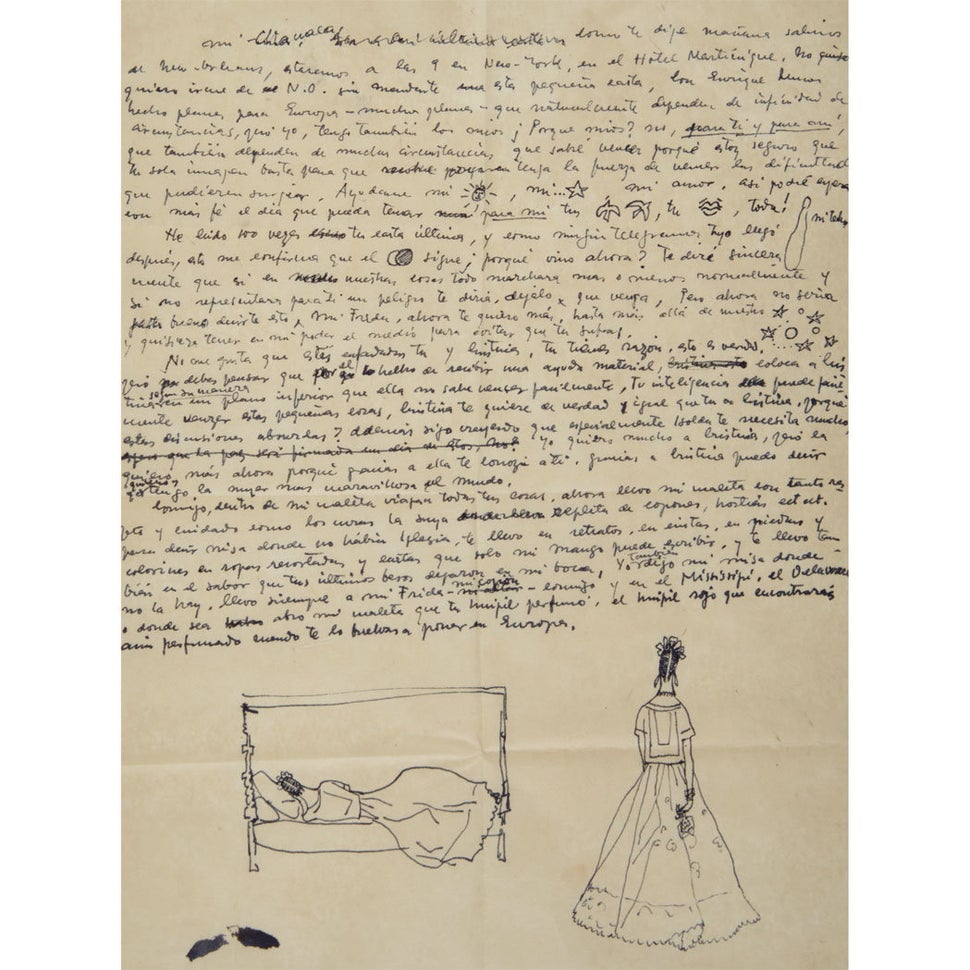 mi Chiquita, como te dije mañana salimos
de New-Orleans, estaremos a las 9 en New-York, en el Hotel Martinique. No quise
quiero irme de N.O. sin mandarte una esta pequeña carta, con Enrique hemos
hecho planes para Europa - muchos planes - que naturalmente dependen de infinidad de
circunstancias, pero yo, tengo también los mios ¡ Porque mios? no, para ti y para mi,
que también dependen de muchas circunstancias que sabré vencer porqué estoy seguro que
tu sola imagen basta para que tenga la fuerza de vencer las dificultades
que pudieran surgir. Ayudame mi , mi... , mi amor, así podré esperar
con más fé el día que pueda tener para mi tus , tu , toda!
He leido 100 veces tu carta última, y como ningún telegrama tuyo llegó
después, esto me confirma que el sigue ¡ porqué vino ahora? Te diré sincera
mente que si en nuestras cosas todo marchara mas o menos normalmente y
si no representara para ti un peligro te diria, dejalo, que venga, Pero ahora no seria
bueno decirte esto, mi Frida, ahora te quiero más, hasta más allá de nuestro
y quisiera tener en mi poder el medio para evitar que tu sufras.
No me gusta que estés enfadadas tu y Cristina, tu tienes razón, esto es verdad,
pero debes pensar que por el hecho de recibir una ayuda material, coloca a Cris
tina en un plano inferior que ella no sabe vencer facilmente, Tu inteligencia puede facil
- según su manera
mente vencer estas pequeñas cosas, Cristina te quiere de verdad y igual que tu a Cristina, porqué
estas discusiones absurdas? Además sigo creyendo que especialmente Isolda te necesita mucho,
espero que la paz será firmada un día de estos, no? Yo quiero mucho a Cristina, pero la
quiero más ahora porqué gracias a ella te conozco a ti. gracias a Cristina puedo decir
yo tengo, la mujer mas maravillosa del mundo.
Conmigo, dentro de mi malita viajan todas tus cosas, ahora llevo mi malita con tanto res
peto y cuidado como los curas la suya repleta de copones, hostias ect ect.
para decir misa donde no habia Iglesia, te llevo en retratos, en cintas, en piedras y
colorines en ropas recortadas y cartas que solo mi mango puede escribir, y te llevo tam
bién en el sabor que tus últimos besos dejaron en mi boca, Yo también digo mi misa donde -
no la hay, llevo siempre a mi Frida - mi copón - conmigo, y en el Mississipi, el Delaware
o donde sea abro mi maleta que tu huipil perfumó, el huipil rojo que encontrarás
aún perfumado cuando te lo vuelvas a poner en Europa.